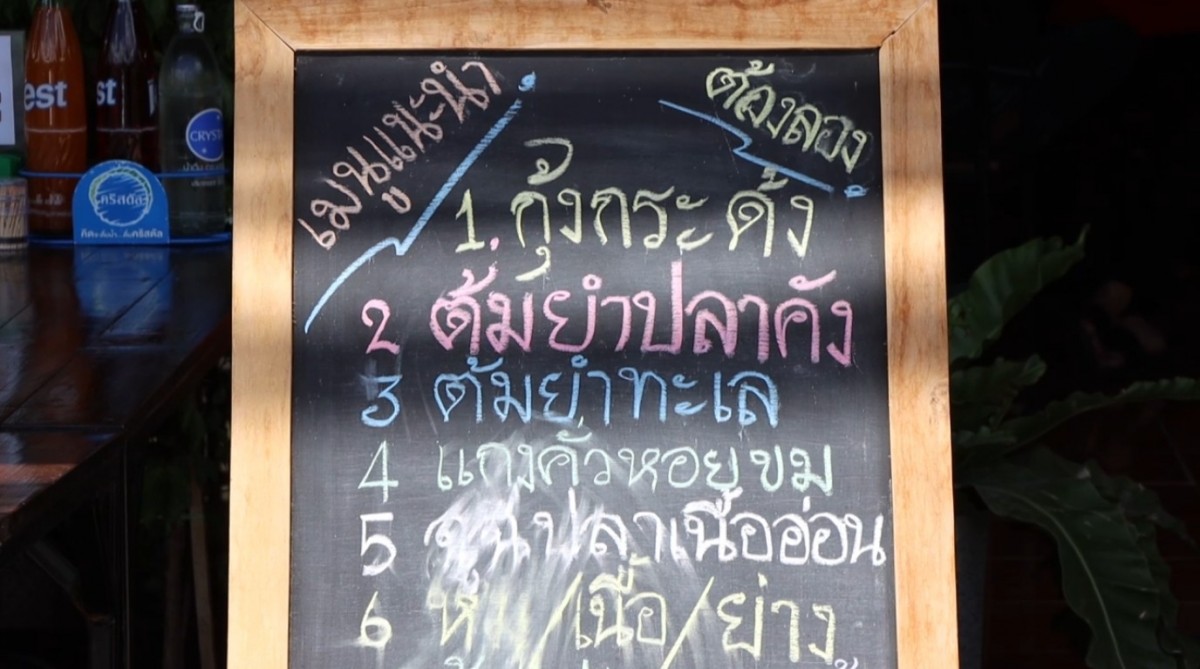 เมนูแนะนำ
ต้องลอง
1. กุ้งกระดั้ง
2 ต้มยำปลาคัง
3 ต้มยำทะเล
4 แกงคั่วหอยขม
5 ปลาเนื้ออ่อน
6 /เนื้อ/ย่าง
est
st
CRYST
คริสตัล